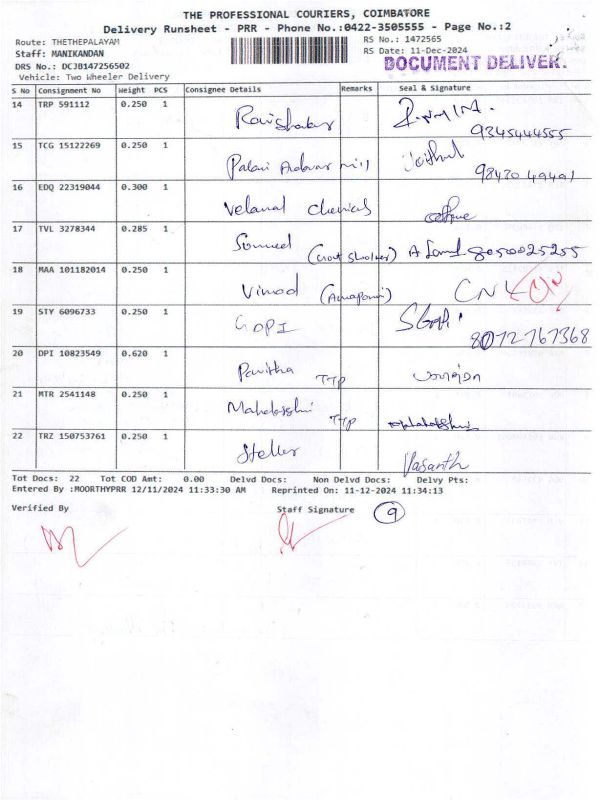 THE PROFESSIONAL COURIERS, COIMBATORE
Delivery Runsheet - PRR - Phone No.:0422-3505555 - Page No.:2
Route: THETHEPALAYAM
RS No.: 1472565
Staff: MANIKANDAN
RS Date: 11-Dec-2024
DRS No.: DCJB147256502
DOCUMENT DELIVER.
Vehicle: Two Wheeler Delivery
S No Consignment No Weight PCS Consignee Details Remarks Seal & Signature
14 TRP 591112 0.250 1
9345444555
15 TCG 15122269 0.250 1 Palani mill
16 EDQ 22319044 0.300 1 Velanal Chemicals
17 TVL 3278344 0.285 1 8050025255
18 MAA 101182014 0.250 1 Vinod
19 STY 6096733 0.250 1 GOPI
8072767368
20 DPI 10823549 0.620 1 Pavitha TTP
21 MTR 2541148 0.250 1 TTP
22 TRZ 150753761 0.250 1 Steller Vasanth
Tot Docs: 22 Tot COD Amt: 0.00 Delvd Docs: Non Delvd Docs: Delvy Pts:
Entered By :MOORTHYPRR 12/11/2024 11:33:30 AM Reprinted On: 11-12-2024 11:34:13
Verified By Staff Signature 9